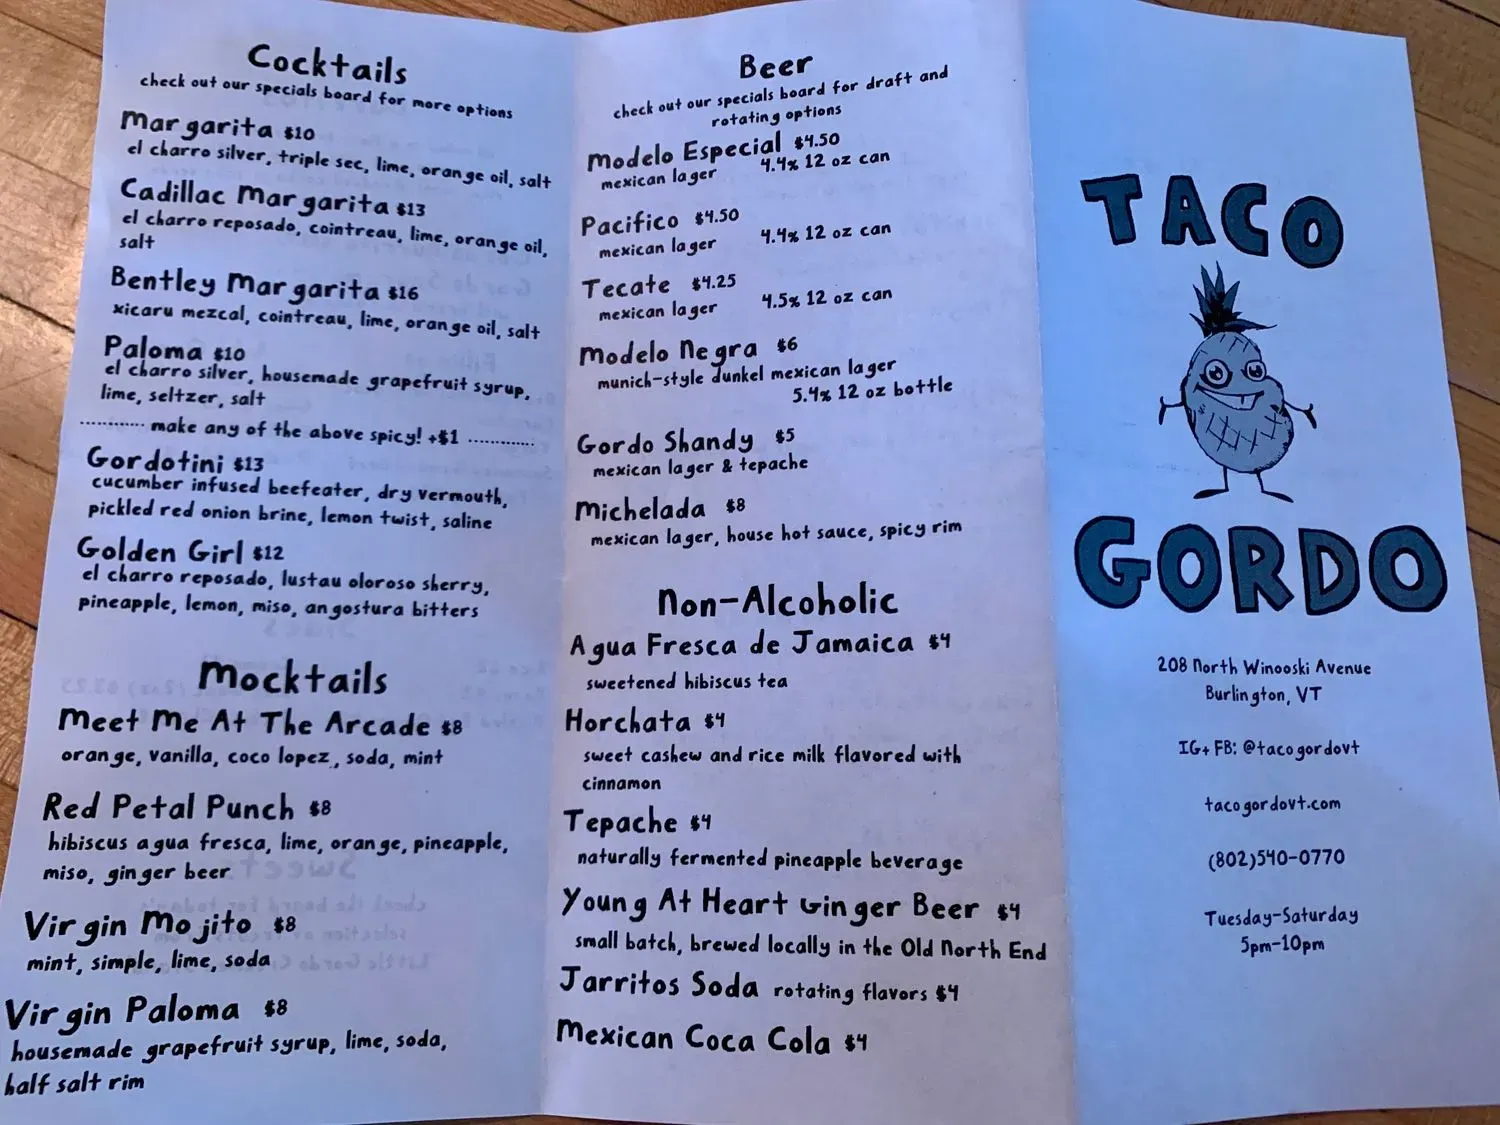 Cocktails
check out our specials board for more options
Margarita $10
el charro silver, triple sec, lime, orange oil, salt
Cadillac Margarita $13
el charro reposado, cointreau, lime, orange oil,
salt
Bentley Margarita $16
xicaru mezcal, cointreau, lime, orange oil, salt
Paloma $10
el charro silver, housemade grapefruit syrup,
lime, seltzer, salt
............ make any of the above spicy! +$1 ............
Gordotini $13
cucumber infused beefeater, dry vermouth,
pickled red onion brine, lemon twist, saline
Golden Girl $12
el charro reposado, lustau oloroso sherry,
pineapple, lemon, miso, angostura bitters
Mocktails
Meet Me At The Arcade $8
orange, vanilla, coco lopez, soda, mint
Red Petal Punch $8
hibiscus agua fresca, lime, orange, pineapple,
miso, ginger beer
Virgin Mojito $8
mint, simple, lime, soda
Virgin Paloma $8
housemade grapefruit syrup, lime, soda,
half salt rim
Beer
check out our specials board for draft and
rotating options
Modelo Especial $4.50
mexican lager 4.4% 12 oz can
Pacifico $4.50
mexican lager 4.4% 12 oz can
Tecate $4.25
mexican lager 4.5% 12 oz can
Modelo Negra $6
munich-style dunkel mexican lager
5.4% 12 oz bottle
Gordo Shandy $5
mexican lager & tepache
Michelada $8
mexican lager, house hot sauce, spicy rim
Non-Alcoholic
Agua Fresca de Jamaica $4
sweetened hibiscus tea
Horchata $4
sweet cashew and rice milk flavored with
cinnamon
Tepache $4
naturally fermented pineapple beverage
Young At Heart Ginger Beer $4
small batch, brewed locally in the Old North End
Jarritos Soda rotating flavors $4
Mexican Coca Cola $4
TACO
GORDO
208 North Winooski Avenue
Burlington, VT
IG+ FB: @tacogordovt
tacogordovt.com
(802)540-0770
Tuesday-Saturday
5pm-10pm